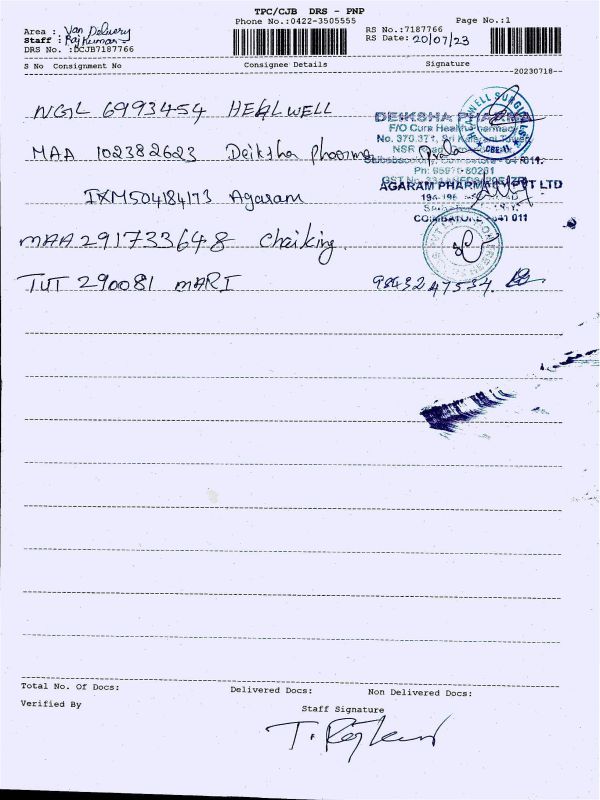 TPC/CJB DRS - PNP
Phone No.:0422-3505555
Page No.:1
Area : Van Delivery
Staff : Raj kumar
DRS No. :DCJB7187766
RS No.:7187766
RS Date: 20/07/23
S No Consignment No Consignee Details Signature
20230718
NGL 6993454 HEALWELL
DEIKSHA PHARMA
F/O Cure Health Pharmacy
No. 370,371, Sri
NSR Road
MAA 102382623 Deiksha pharma
Ph: 80201
AGARAM PHARMACY PVT LTD
IXM504184173 Agaram
COIMBATORE 641 011
MAA 291733648 Chaiking
TUT 290081 MARI 9843247534.
Total No. Of Docs: Delivered Docs: Non Delivered Docs:
Verified By
Staff Signature
T. Rajkumar